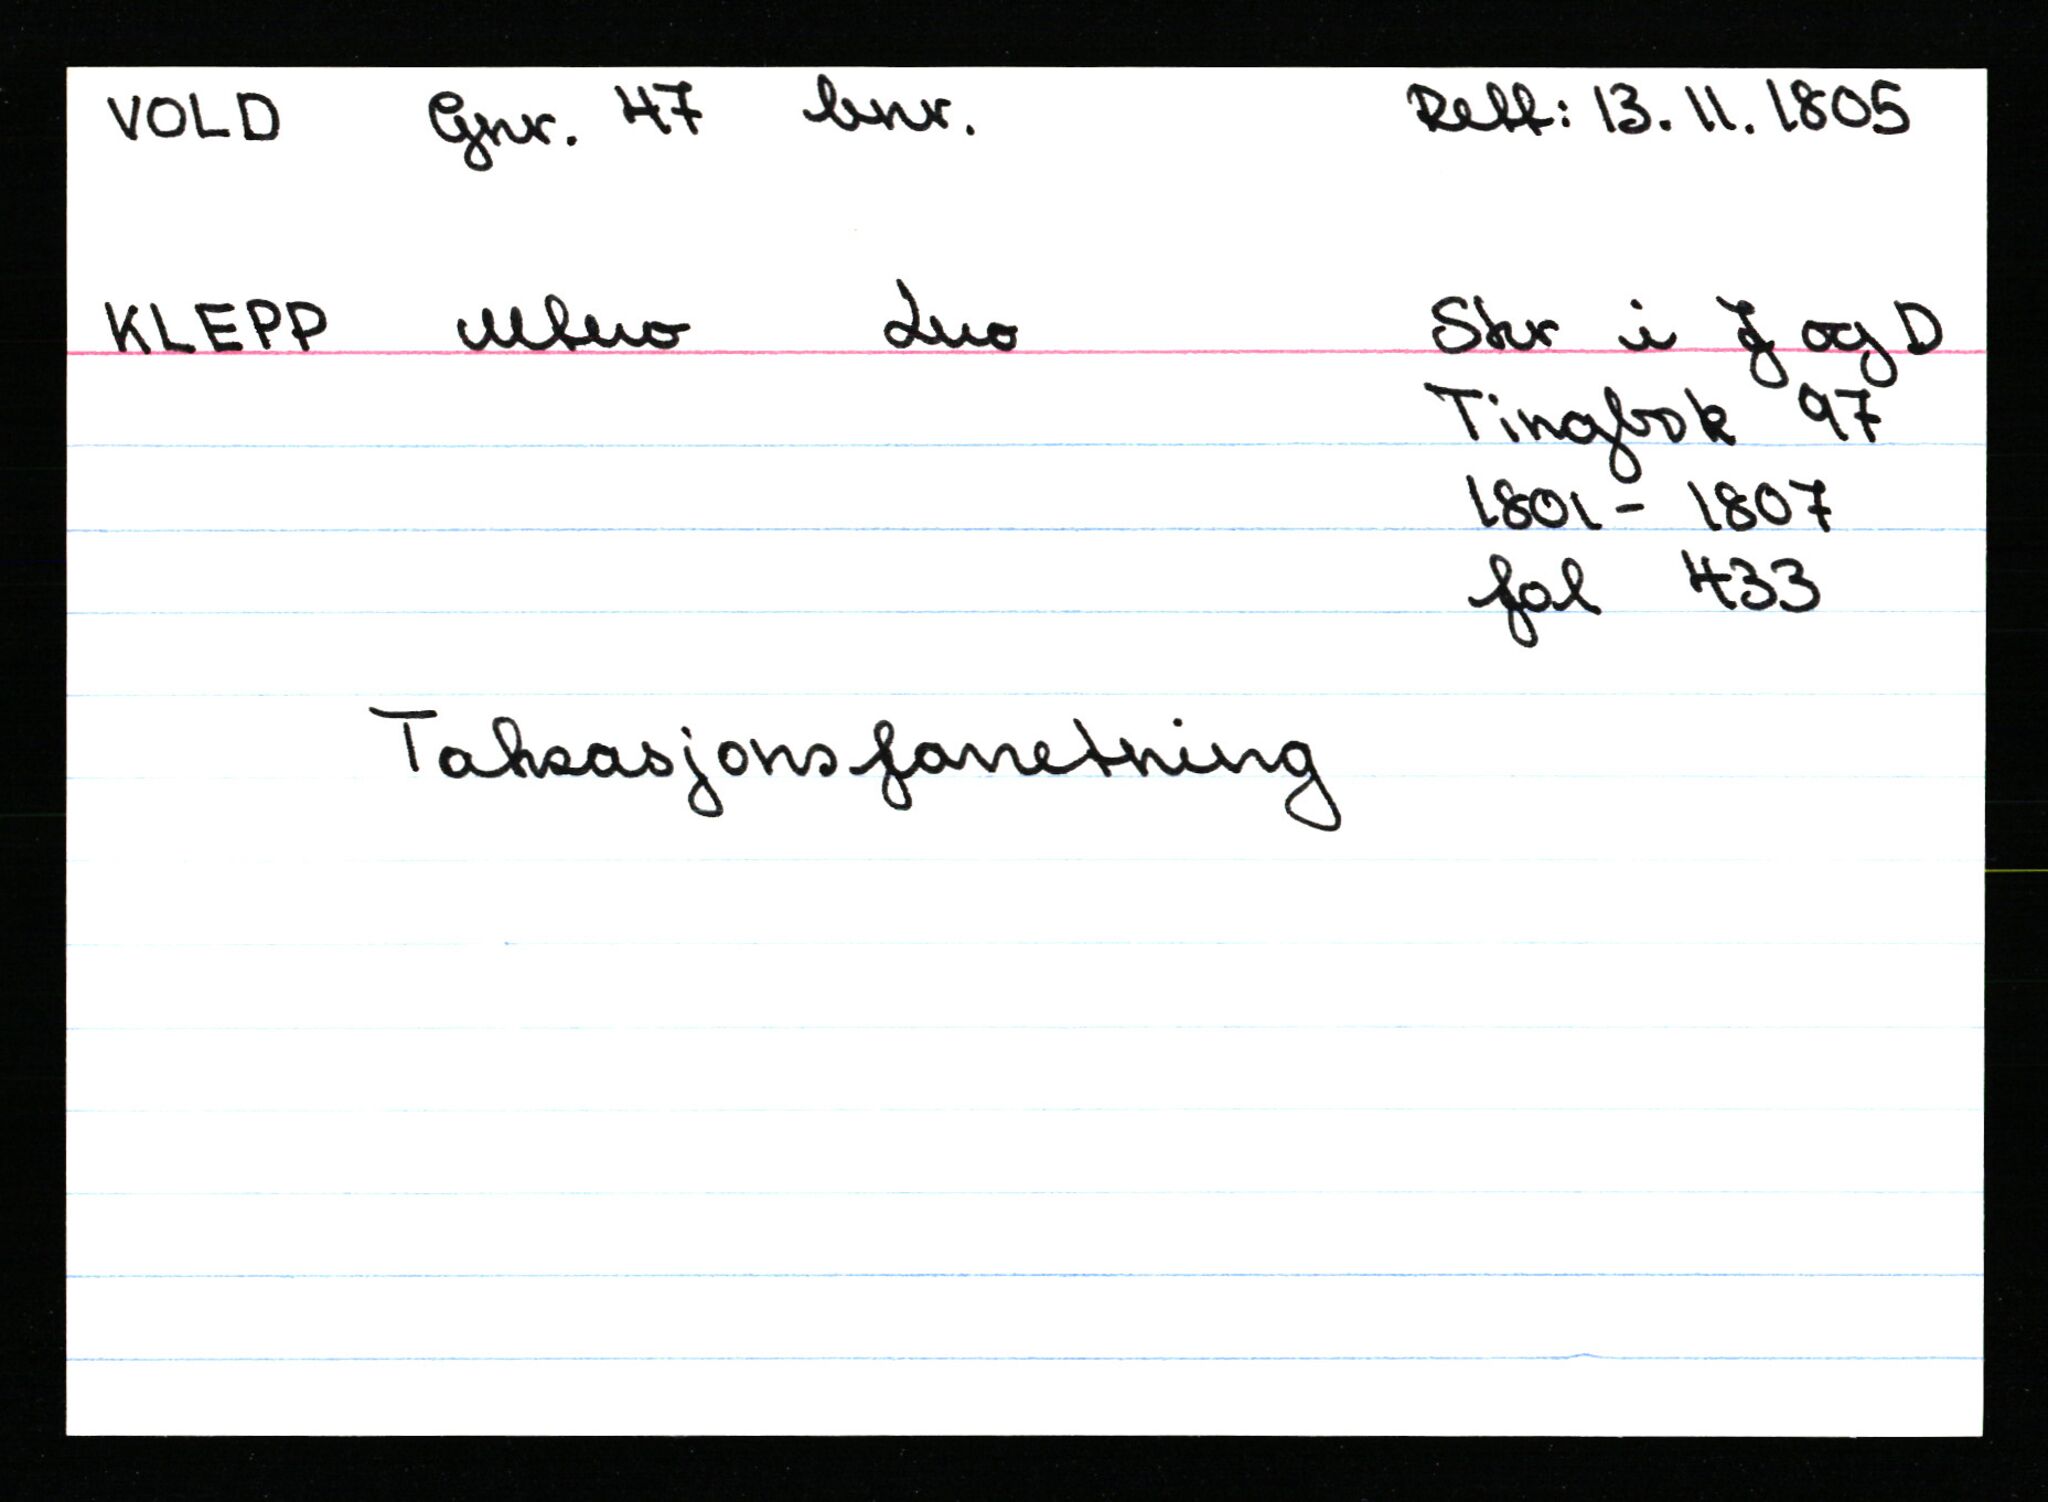 VOLD Gnr. 47 bnr. Reff: 13.11.1805
KLEPP Mnr Lnr Skr i J og D
Tingbok 97
1801 - 1807
fol 433
Taksasjonsforretning